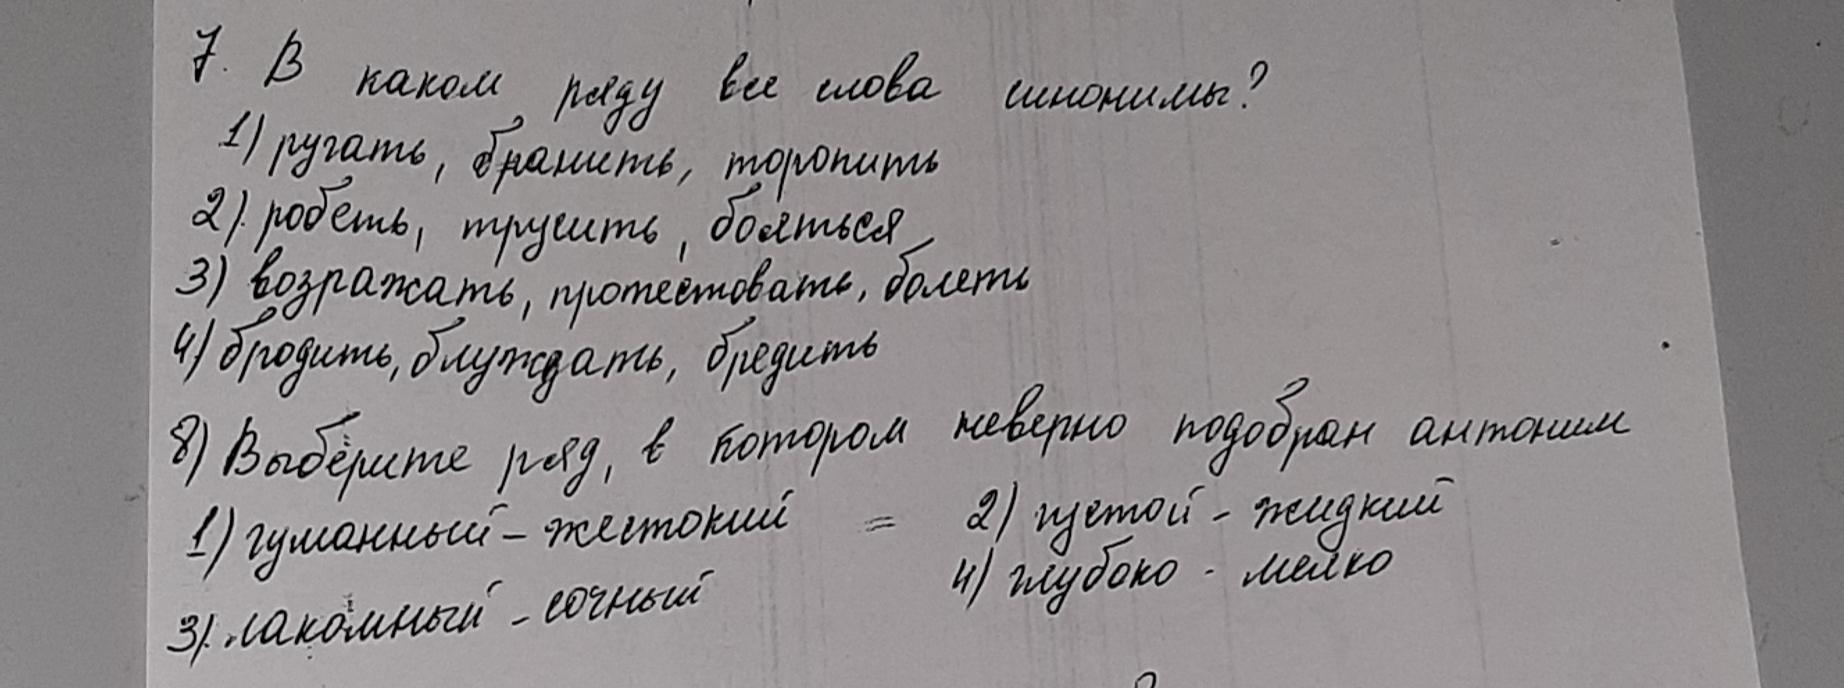 7. В каком ряду все слова синонимы?
1) ругать, бранить, торопить
2) робеть, трусить, бояться
3) возражать, протестовать, болеть
4) бродить, блуждать, бредить
8) Выберите ряд, в котором неверно подобран антоним
1) гуманный - жестокий = 2) густой - жидкий
3) лакомный - сочный 4) глубоко - мелко